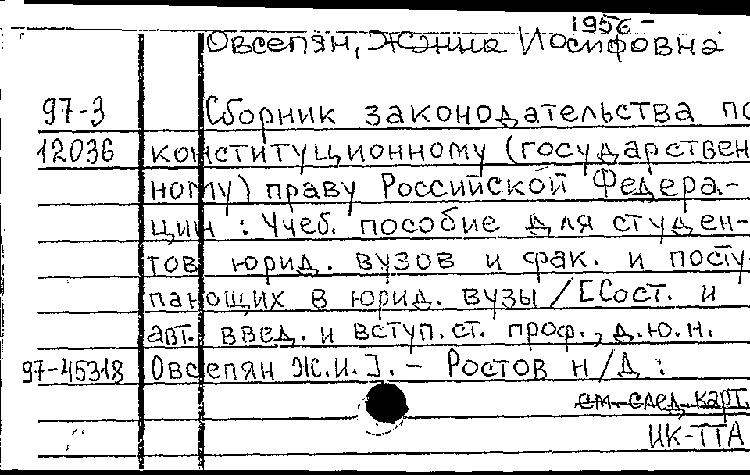 1956-
Овсепян, Жанна Иосифовна
97-3 Сборник законодательства по
12036 конституционному (государствен
ному) праву Российской Федера-
ции : Учеб. пособие для студен-
тов юрид. вузов и фак. и посту-
пающих в юрид. вузы / [Сост. и
авт. введ. и вступ. ст. проф., д.ю.н.
97-45318 Овсепян Ж.И.]. - Ростов н/Д :
см. след. карт.
ИК-ТТА